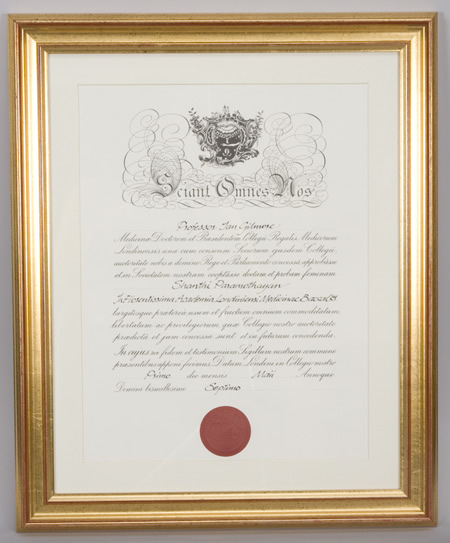 Sciant Omnes Nos
Professor Ian Gilmore
Medicinæ Doctorem et Præsidentem Collegii Regalis Medicorum
Londinensis una cum consensu Sociorum ejusdem Collegii
auctoritate nobis a domino Rege et Parliamento concessa approbasse
et in Societatem nostram cooptasse doctam et probam feminam
Shanthi Paramothayan
In Florentissima Academia Londiniensi Medicinae Bacc
largitosque præterea usum et fructum omnium commoditatum
libertatum ac privilegiorum quæ Collegio nostro auctoritate
prædicta et jam concessa sunt et in futurum concedenda.
In cujus rei fidem et testimonium Sigillum nostrum commune
præsentibus apponi fecimus. Datum Londini in Collegio nostro
Primo die mensis Maii Annoque
Domini bismillesimo Septimo